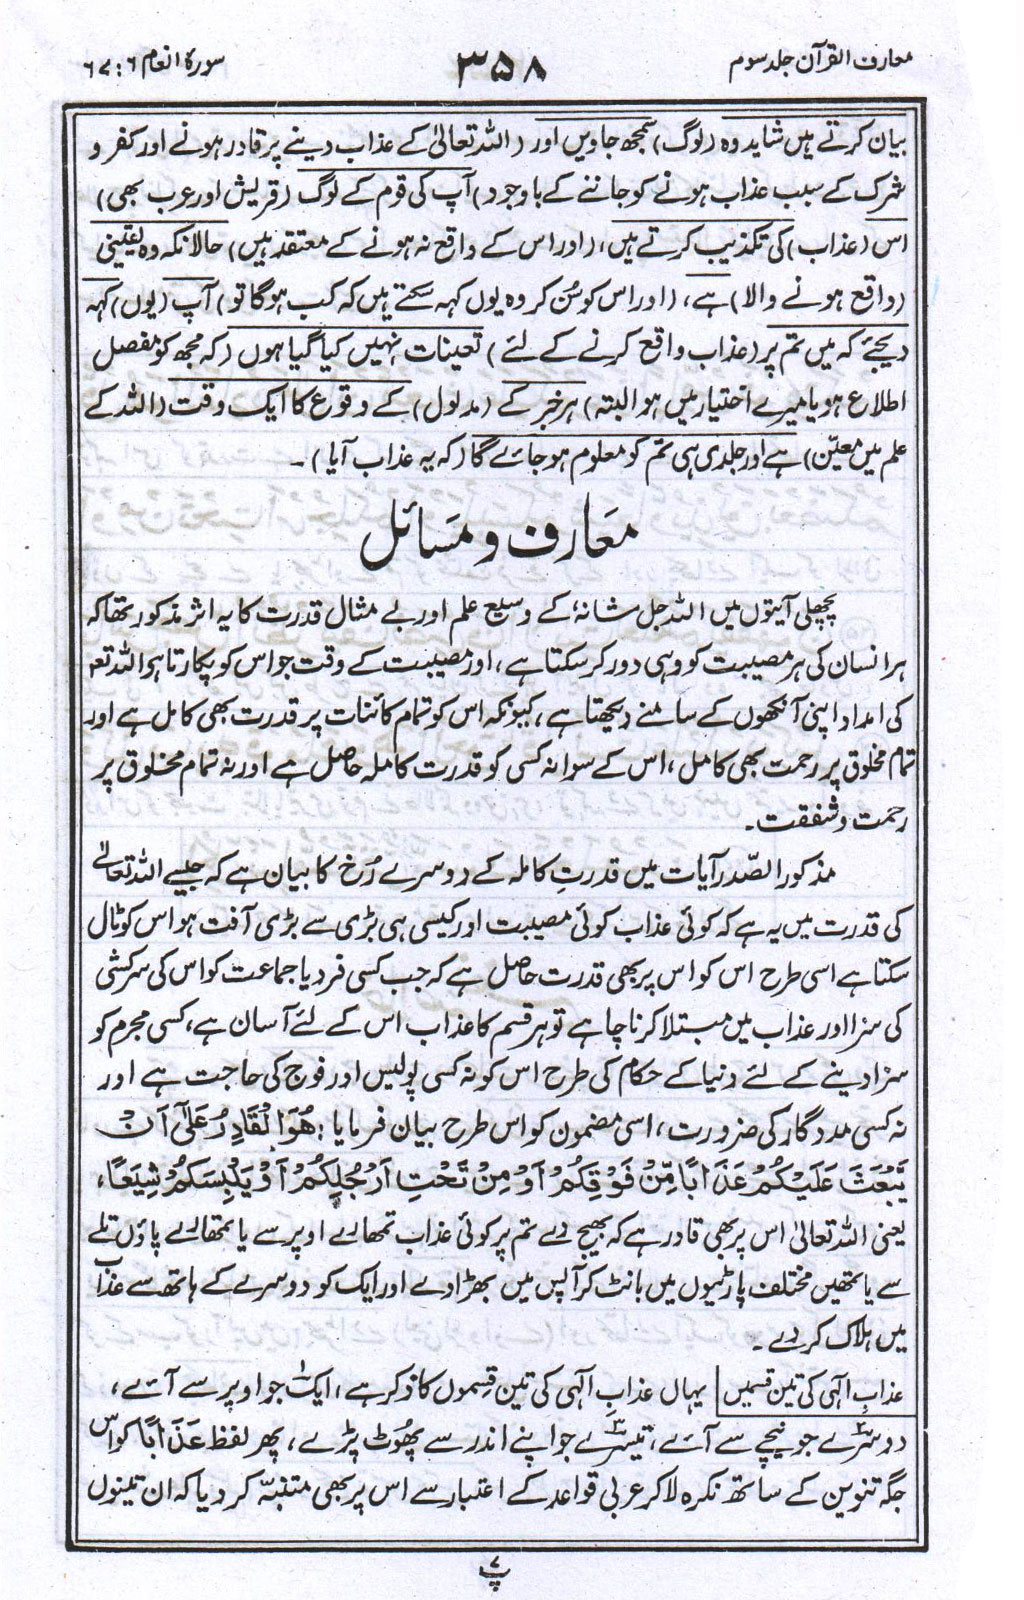 معارف القرآن جلد سوم
۳۵۸
سورۂ انعام ۶ : ۶۷
بیان کرتے ہیں شاید وہ (لوگ) سمجھ جاویں اور (اللہ تعالیٰ کے عذاب دینے پر قادر ہونے اور کفر و
شرک کے سبب عذاب ہونے کو جاننے کے باوجود) آپ کی قوم کے لوگ (قریش اور عرب بھی)
اس (عذاب) کی تکذیب کرتے ہیں، (اور اس کے واقع نہ ہونے کے معتقد ہیں) حالانکہ وہ یقینی
(واقع ہونے والا) ہے، (اور اس کو سُن کر وہ یوں کہہ سکتے ہیں کہ کب ہوگا تو) آپ (یوں) کہہ
دیجئے کہ میں تم پر (عذاب واقع کرنے کے لئے) تعینات نہیں کیا گیا ہوں (کہ مجھ کو مفصل
اطلاع ہو یا میرے اختیار میں ہو البتہ) ہر خبر کے (مدلول) کے وقوع کا ایک وقت (اللہ کے
علم میں معیّن) ہے اور جلدی ہی تم کو معلوم ہو جائے گا (کہ یہ عذاب آیا)۔
مَعَارف و مسَائل
پچھلی آیتوں میں اللہ جل شانہٗ کے وسیع علم اور بے مثال قدرت کا یہ اثر مذکور تھا کہ
ہر انسان کی ہر مصیبت کو وہی دور کر سکتا ہے، اور مصیبت کے وقت جو اس کو پکارتا ہو اللہ تعہ
کی امداد اپنی آنکھوں کے سامنے دیکھتا ہے، کیونکہ اس کو تمام کائنات پر قدرت بھی کامل ہے اور
تمام مخلوق پر رحمت بھی کامل، اس کے سوا نہ کسی کو قدرت کاملہ حاصل ہے اور نہ تمام مخلوق پر
رحمت و شفقت۔
مذکور الصّدر آیات میں قدرتِ کاملہ کے دوسرے رُخ کا بیان ہے کہ جیسے اللہ تعالےٰ
کی قدرت میں یہ ہے کہ کوئی عذاب کوئی مصیبت اور کیسی ہی بڑی سے بڑی آفت ہو اس کو ٹال
سکتا ہے اسی طرح اس کو اس پر بھی قدرت حاصل ہے کہ جب کسی فرد یا جماعت کو اس کی سرکشی
کی سزا اور عذاب میں مبتلا کرنا چاہے تو ہر قسم کا عذاب اس کے لئے آسان ہے، کسی مجرم کو
سزا دینے کے لئے دنیا کے حکام کی طرح اس کو نہ کسی پولیس اور فوج کی حاجت ہے اور
نہ کسی مددگار کی ضرورت، اسی مضمون کو اس طرح بیان فرمایا : هُوَ الْقَادِرُ عَلٰٓى اَنْ
يَّبْعَثَ عَلَيْكُمْ عَذَابًا مِّنْ فَوْقِكُمْ اَوْ مِنْ تَحْتِ اَرْجُلِكُمْ اَوْ يَلْبِسَكُمْ شِيَعًا،
یعنی اللہ تعالیٰ اس پر بھی قادر ہے کہ بھیج دے تم پر کوئی عذاب تمھارے اوپر سے یا تمھارے پاؤں تلے
سے یا تمھیں مختلف پارٹیوں میں بانٹ کر آپس میں بھڑا دے اور ایک کو دوسرے کے ہاتھ سے عذاب
میں ہلاک کر دے۔
عذابِ الٰہی کی تین قسمیں یہاں عذابِ الٰہی کی تین قِسموں کا ذکر ہے، ایک۱ جو اوپر سے آئے،
دوسرے۲ جو نیچے سے آئے، تیسرے۳ جو اپنے اندر سے پھُوٹ پڑے، پھر لفظ عَذَابًا کو اس
جگہ تنوین کے ساتھ نکرہ لاکر عربی قواعد کے اعتبار سے اس پر بھی متنبّہ کر دیا کہ ان تینوں
پ۷